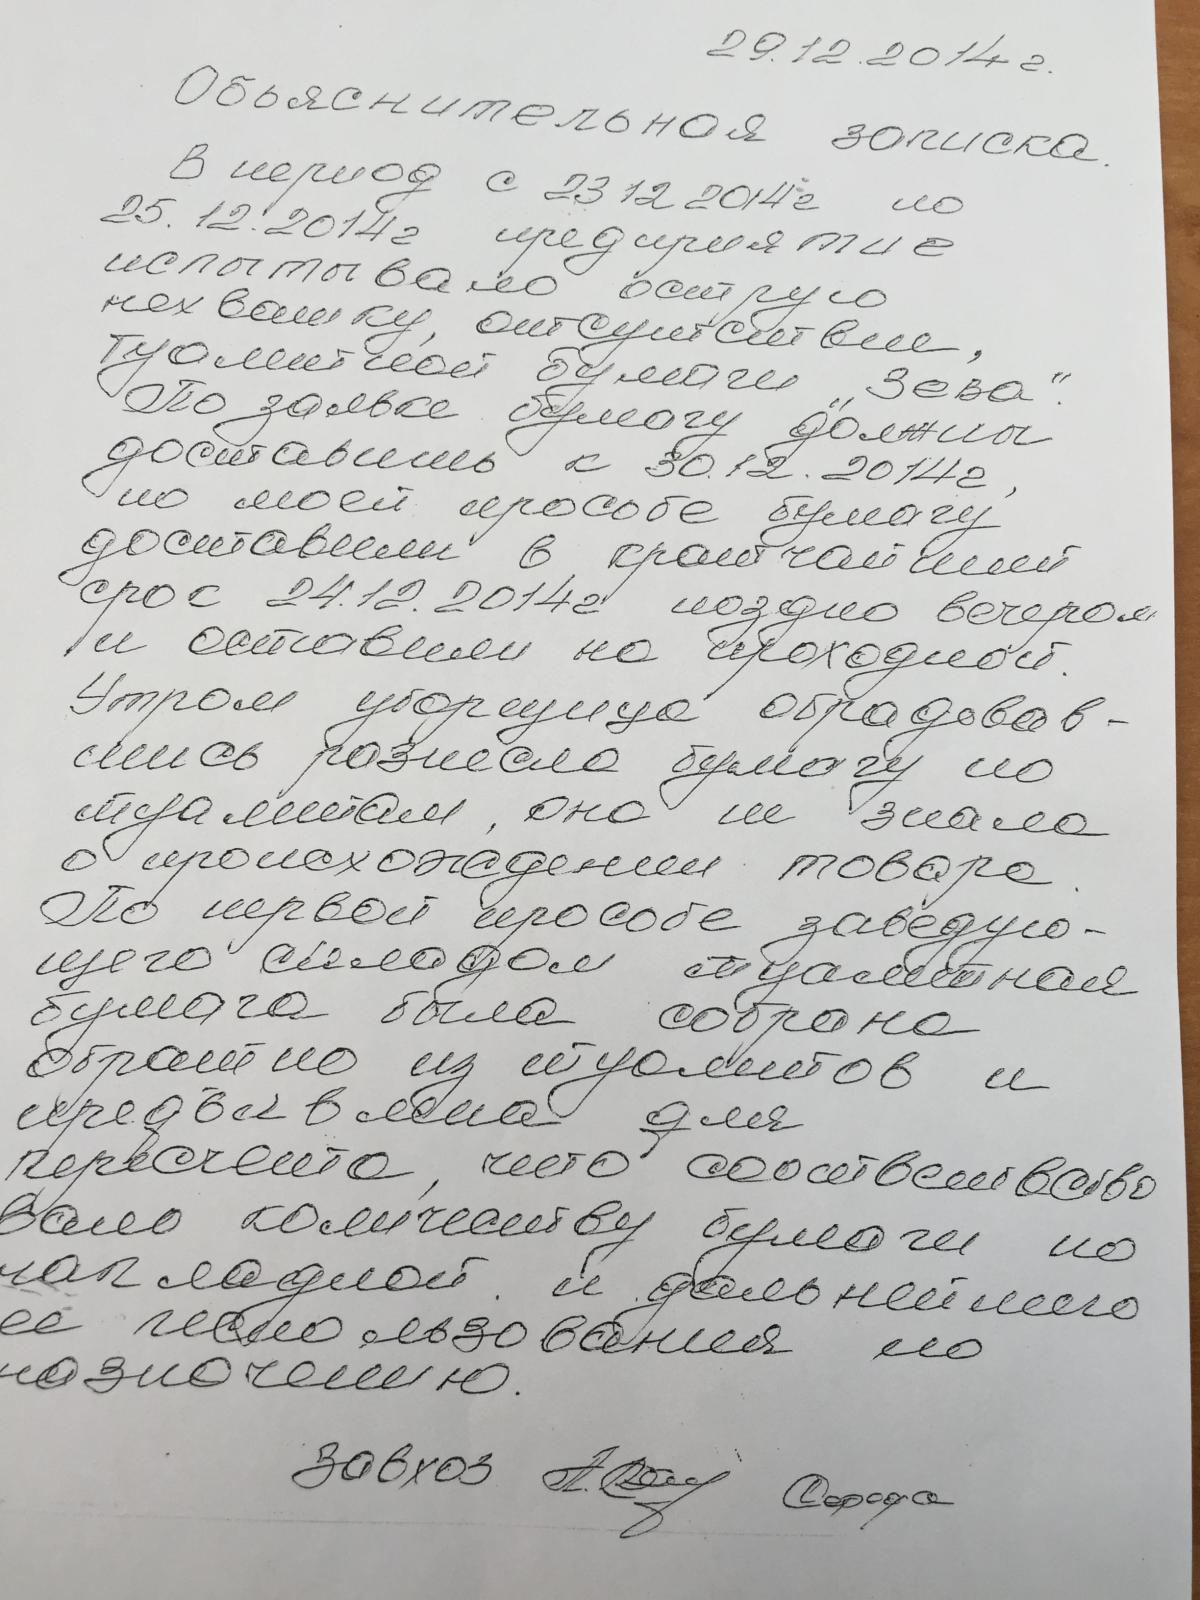 29.12.2014г.
Обьяснительная записка.
В период с 23 12 2014г по
25.12.2014г предприятие
испытывало острую
нехватку, отсутствие,
туалетной бумаги „Зева".
По заявке бумагу должны
доставить к 30.12.2014г,
по моей прособе бумагу
доставили в кратчайший
срос 24.12.2014г поздно вечером
и оставили на проходной.
Утром уборщица обрадовав-
шись разнесла бумагу по
туалетам, она не знала
о происхождении товара.
По первой прособе заведую-
щего складом туалетная
бумага была собрана
обратно из туалетов и
предъявлена для
пересчета, что соответство
вало количеству бумаги по
накладной и дальнейшего
ее использования по
назначению.
Завхоз Середа